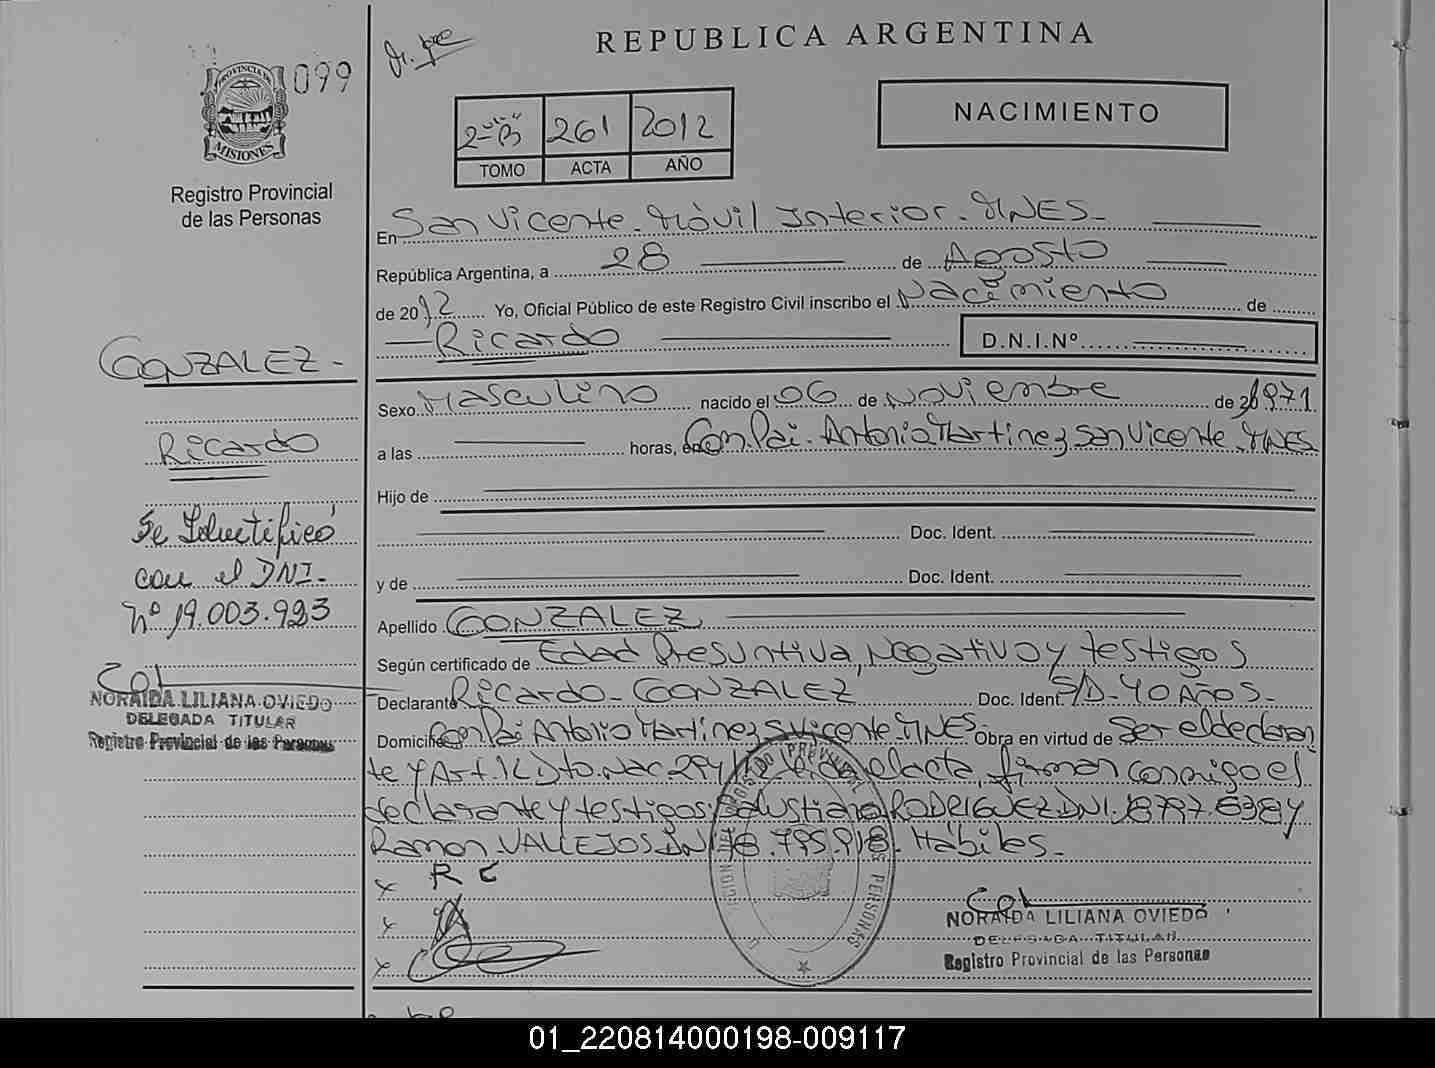 Dr. jpe
REPUBLICA ARGENTINA
099
PROVINCIA DE
MISIONES
Registro Provincial
de las Personas
2-"B" 261 2012
TOMO ACTA AÑO
NACIMIENTO
En San Vicente - Móvil Interior - MNES-
República Argentina, a 28 de Agosto
de 2012 Yo, Oficial Público de este Registro Civil inscribo el Nacimiento de
Ricardo D.N.I.Nº
GONZALEZ-
Ricardo
Se Identificó
con el DNI-
Nº 19.003.923
NORAIDA LILIANA OVIEDO
DELEGADA TITULAR
Registro Provincial de las Personas
Sexo Masculino nacido el 06 de Noviembre de 1971
a las horas, en Com. Pai - Antonio Martinez San Vicente - MNES
Hijo de
Doc. Ident.
y de Doc. Ident.
Apellido GONZALEZ
Según certificado de Edad Presuntiva, Negativo y testigos
Declarante Ricardo - GONZALEZ Doc. Ident. S/D - 40 Años -
Domicilio Com Pai Antonio Martinez S Vicente - MNES - Obra en virtud de Ser el declaran
te y Art. 1º Dto. Nac 294/12 Leída el acta, firman conmigo el
declarante y testigos: Salustiano RODRIGUEZ DNI. 18797.638 y
Ramon VALLEJOS DNI 18.795.918 - Hábiles -
x R C
x
x
PERSONAS
NORAIDA LILIANA OVIEDO
DELEGADA TITULAR
Registro Provincial de las Personas
01_220814000198-009117